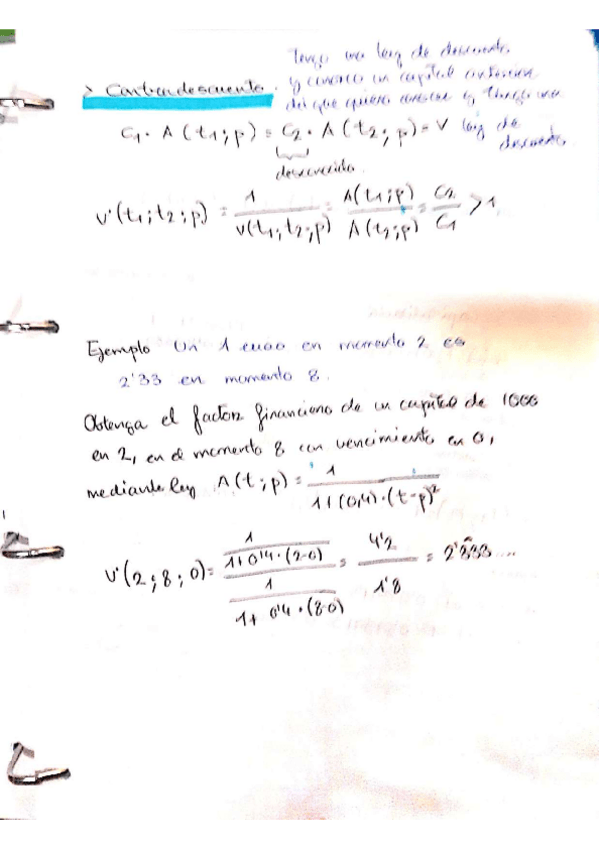 Tengo una ley de descuento
y conozco un capital anterior
> Contradescuento. del que quiero conocer y tengo una
ley de descuento.
C₁ · A(t₁;p) = C₂ · A(t₂;p) = V
descuento
v'(t₁;t₂;p) = 1 / v(t₁;t₂;p) = A(t₁;p) / A(t₂;p) = C₂ / C₁ > 1
Ejemplo Un 1 euro en momento 2 es
2'33 en momento 8.
Obtenga el factor financiero de un capital de 1000
en 2, en el momento 8 con vencimiento en 0,
mediante ley A(t;p) = 1 / 1+(0,4)·(t-p)²
v'(2;8;0) = (1 / 1+0'4·(2-0)) / (1 / 1+0'4·(8-0)) = 4'2 / 1'8 = 2'333...